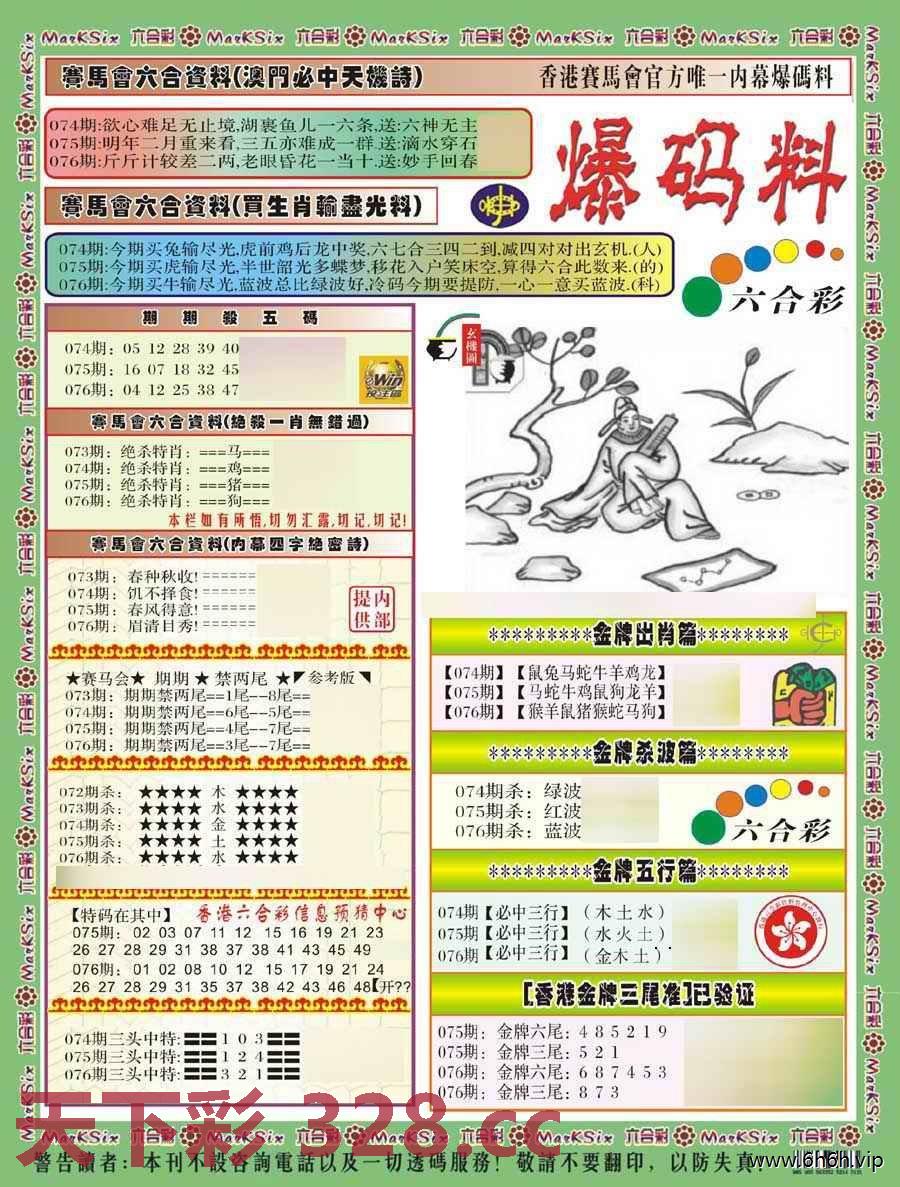 MarKSix 六合彩 MarKSix 六合彩 MarKSix 六合彩 MarKSix 六合彩 MarKSix 六合彩
賽馬會六合資料(澳門必中天機詩)
香港賽馬會官方唯一内幕爆碼料
074期:欲心难足无止境,湖裹鱼儿一六条,送:六神无主
075期:明年二月重来看,三五亦难成一群.送:滴水穿石
076期:斤斤计较差二两,老眼昏花一当十,送:妙手回春
爆码料
賽馬會六合資料(買生肖輸盡光料)
074期:今期买兔输尽光,虎前鸡后龙中奖,六七合三四二到,减四对对出玄机.(人)
075期:今期买虎输尽光,半世韶光多蝶梦,移花入户笑床空,算得六合此数来.(的)
076期:今期买牛输尽光,蓝波总比绿波好,冷码今期要提防,一心一意买蓝波.(科)
六合彩
期期殺五碼
074期: 05 12 28 39 40
075期: 16 07 18 32 45
076期: 04 12 25 38 47
Win
玄機圖
賽馬會六合資料(絶殺一肖無錯過)
073期: 绝杀特肖: ===马===
074期: 绝杀特肖: ===鸡===
075期: 绝杀特肖: ===猪===
076期: 绝杀特肖: ===狗===
本栏如有所悟,切勿汇露,切记,切记!
賽馬會六合資料(内幕四字絶密詩)
073期: 春种秋收!======
074期: 饥不择食!======
075期: 春风得意!======
076期: 眉清目秀!======
内部提供
★赛马会★ 期期 ★ 禁两尾 ★◤参考版◥
073期: 期期禁两尾==1尾--8尾==
074期: 期期禁两尾==6尾--5尾==
075期: 期期禁两尾==4尾--7尾==
076期: 期期禁两尾==3尾--7尾==
072期杀: ★★★★ 木 ★★★★
073期杀: ★★★★ 水 ★★★★
074期杀: ★★★★ 金 ★★★★
075期杀: ★★★★ 土 ★★★★
076期杀: ★★★★ 水 ★★★★
【特码在其中】 香港六合彩信息预猜中心
075期: 02 03 07 11 12 15 16 19 21 23
26 27 28 29 31 38 37 38 41 43 45 49
076期: 01 02 08 10 12 15 17 19 21 24
26 27 28 29 31 35 37 38 42 43 46 48【开??
074期三头中特:〓〓1 0 3〓〓
075期三头中特:〓〓1 2 4〓〓
076期三头中特:〓〓3 2 1〓〓
*********金牌出肖篇********
【074期】【鼠兔马蛇牛羊鸡龙】
【075期】【马蛇牛鸡鼠狗龙羊】
【076期】【猴羊鼠猪猴蛇马狗】
*********金牌杀波篇********
074期杀: 绿波
075期杀: 红波
076期杀: 蓝波
六合彩
*********金牌五行篇********
074期【必中三行】（木土水）
075期【必中三行】（水火土）
076期【必中三行】（金木土）
[香港金牌三尾准]已验证
075期: 金牌六尾: 4 8 5 2 1 9
075期: 金牌三尾: 5 2 1
076期: 金牌六尾: 6 8 7 4 5 3
076期: 金牌三尾: 8 7 3
天下彩 328.cc
MarKSix 六合彩 MarKSix 六合彩 MarKSix 六合彩 MarKSix 六合彩 MarKSix 六合彩
警告讀者: 本刊不設咨詢電話以及一切透碼服務! 敬請不要翻印, 以防失真!
www.6h6h.vip